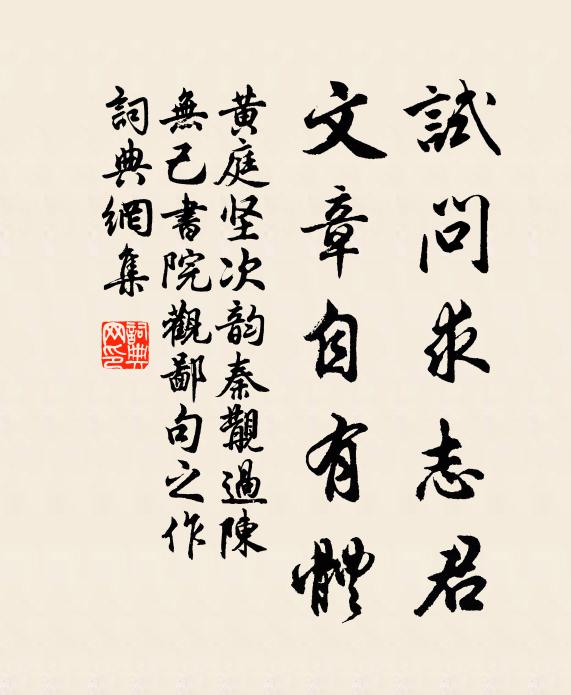 試問求志君
文章自有體
黄庭坚次韵秦觀過陳
無己書院觀鄙句之作
詞典網集
詞典網印